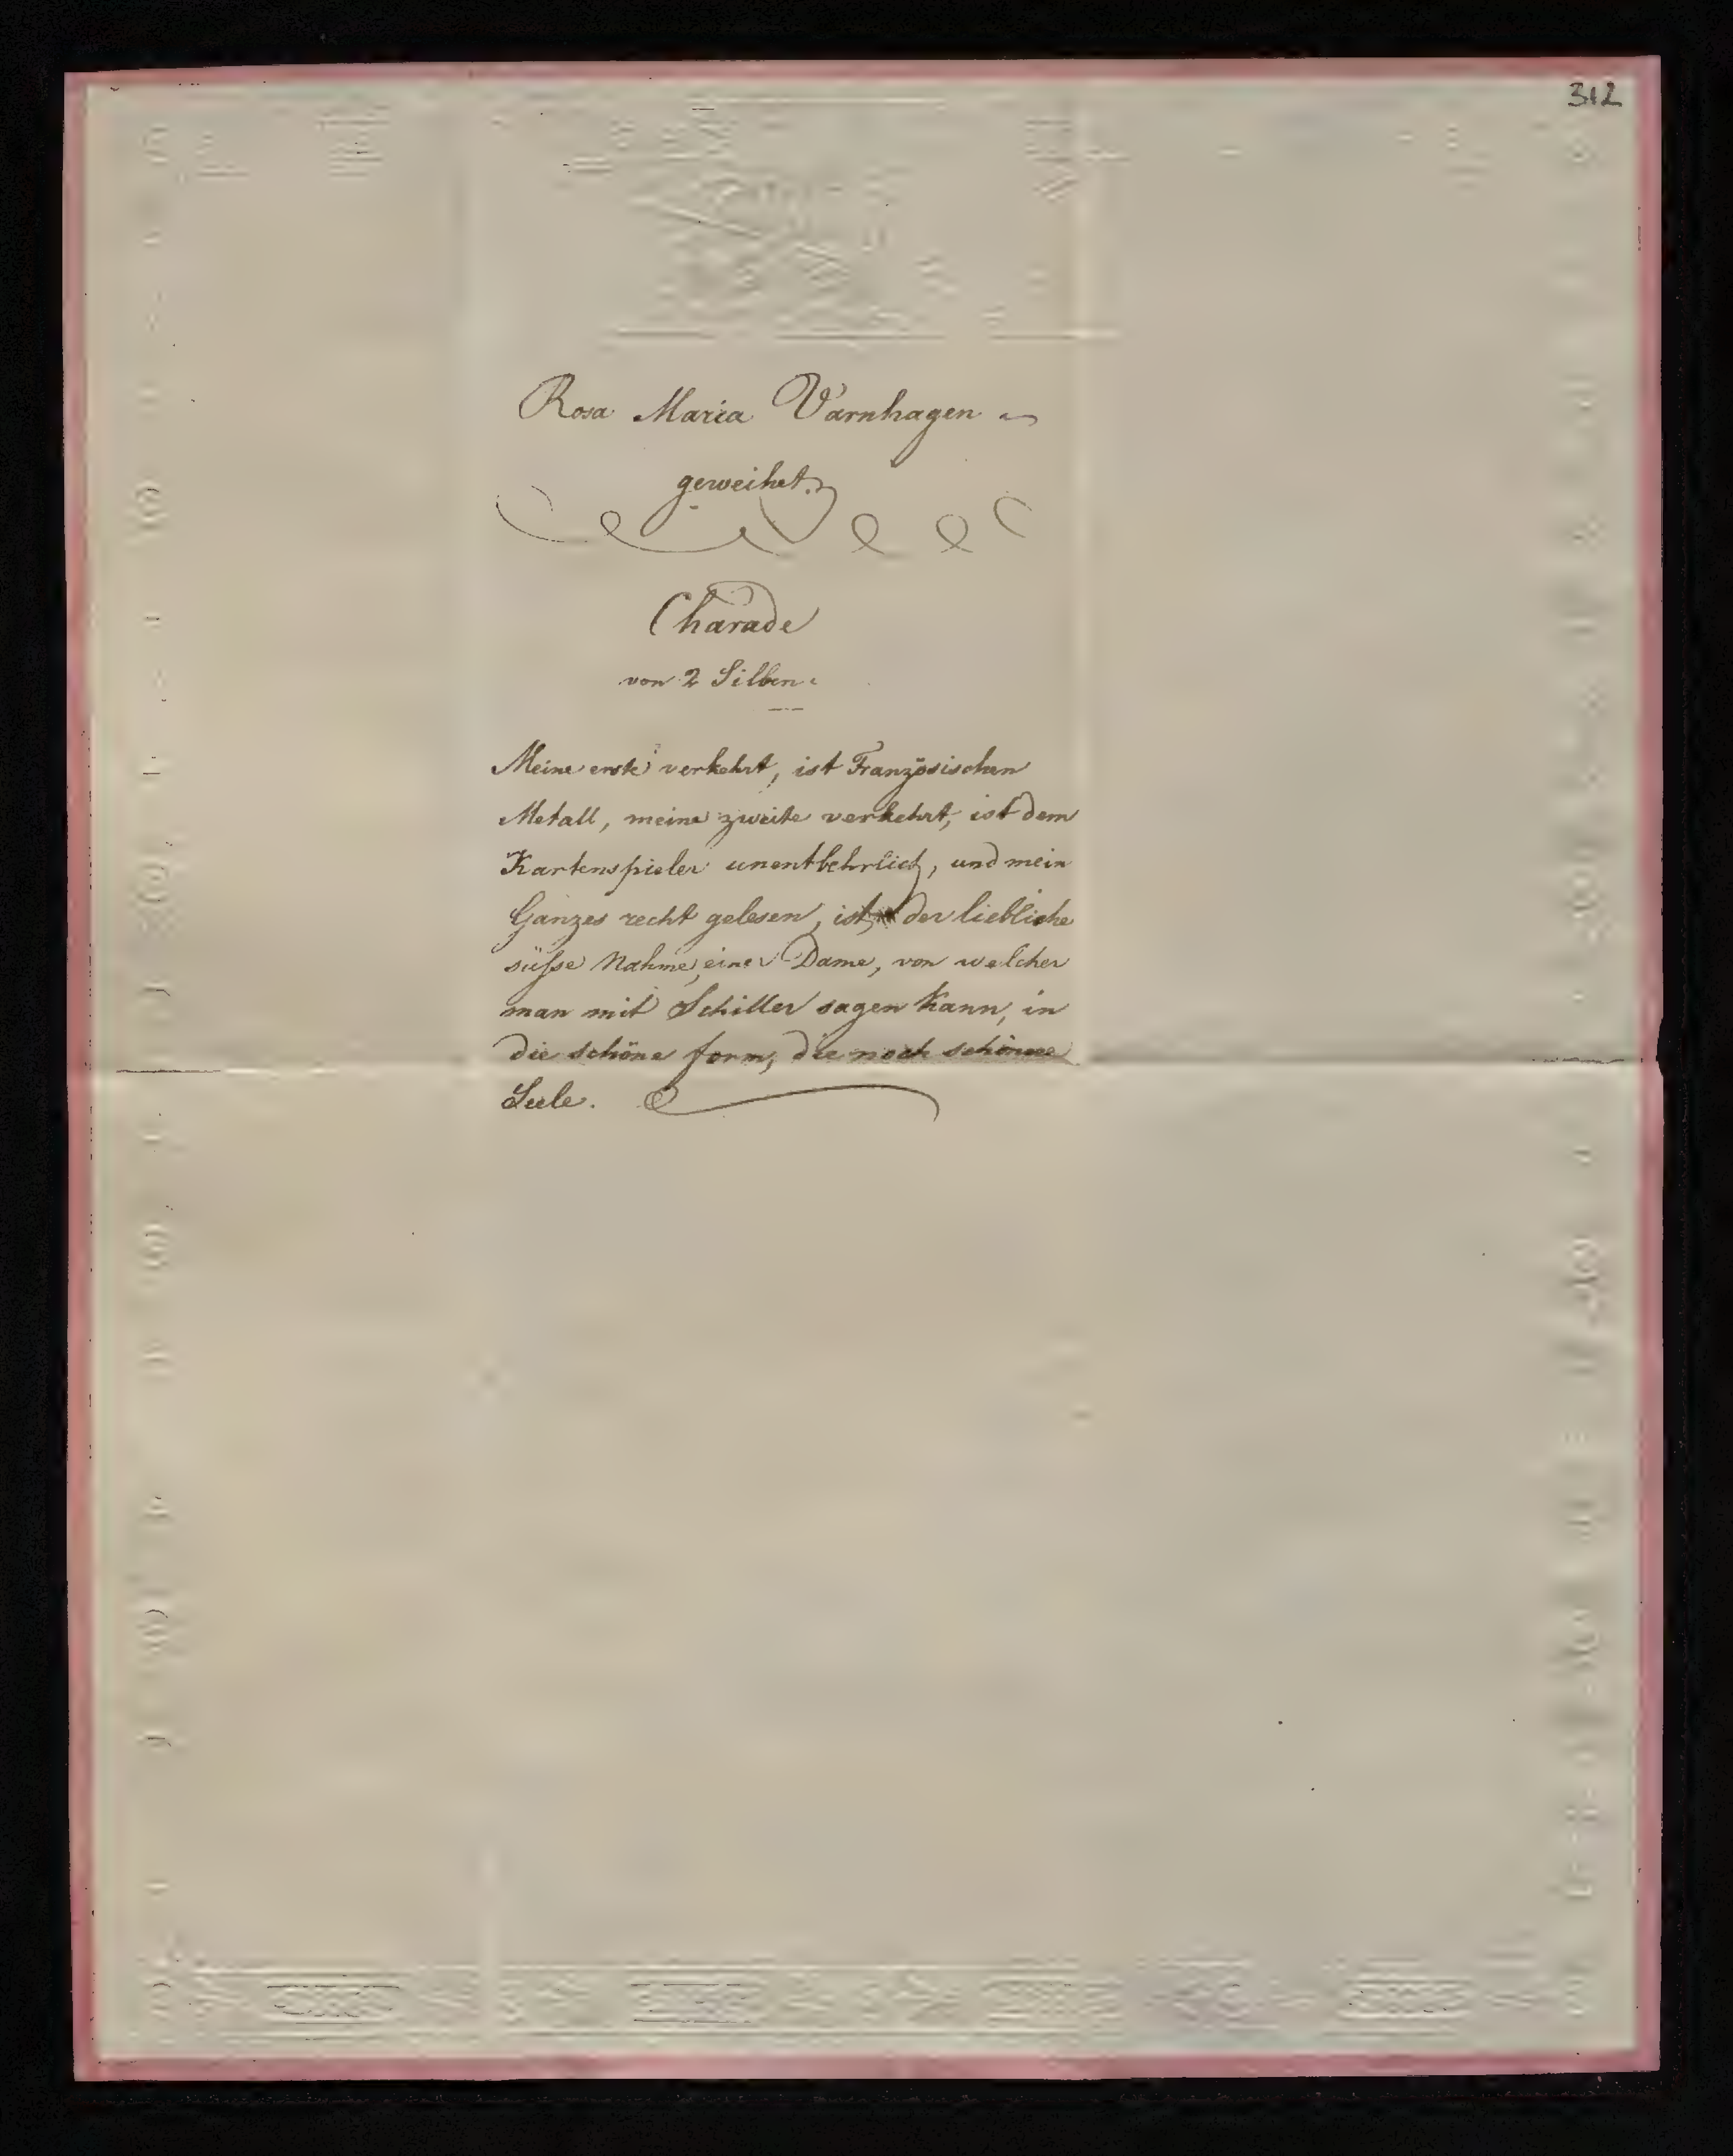 312
Rosa Maria Varnhagen
geweihet.
Charade
von 2 Silben.
Meine erste verkehrt, ist Französischen
Metall, meine zweite verkehrt, ist dem
Kartenspieler unentbehrlich, und mein
Ganzes recht gelesen, ist der liebliche
süſse Nahme, einer Dame, von welcher
man mit Schiller sagen kann, in
die schöne form, die noch schönere
Seele.